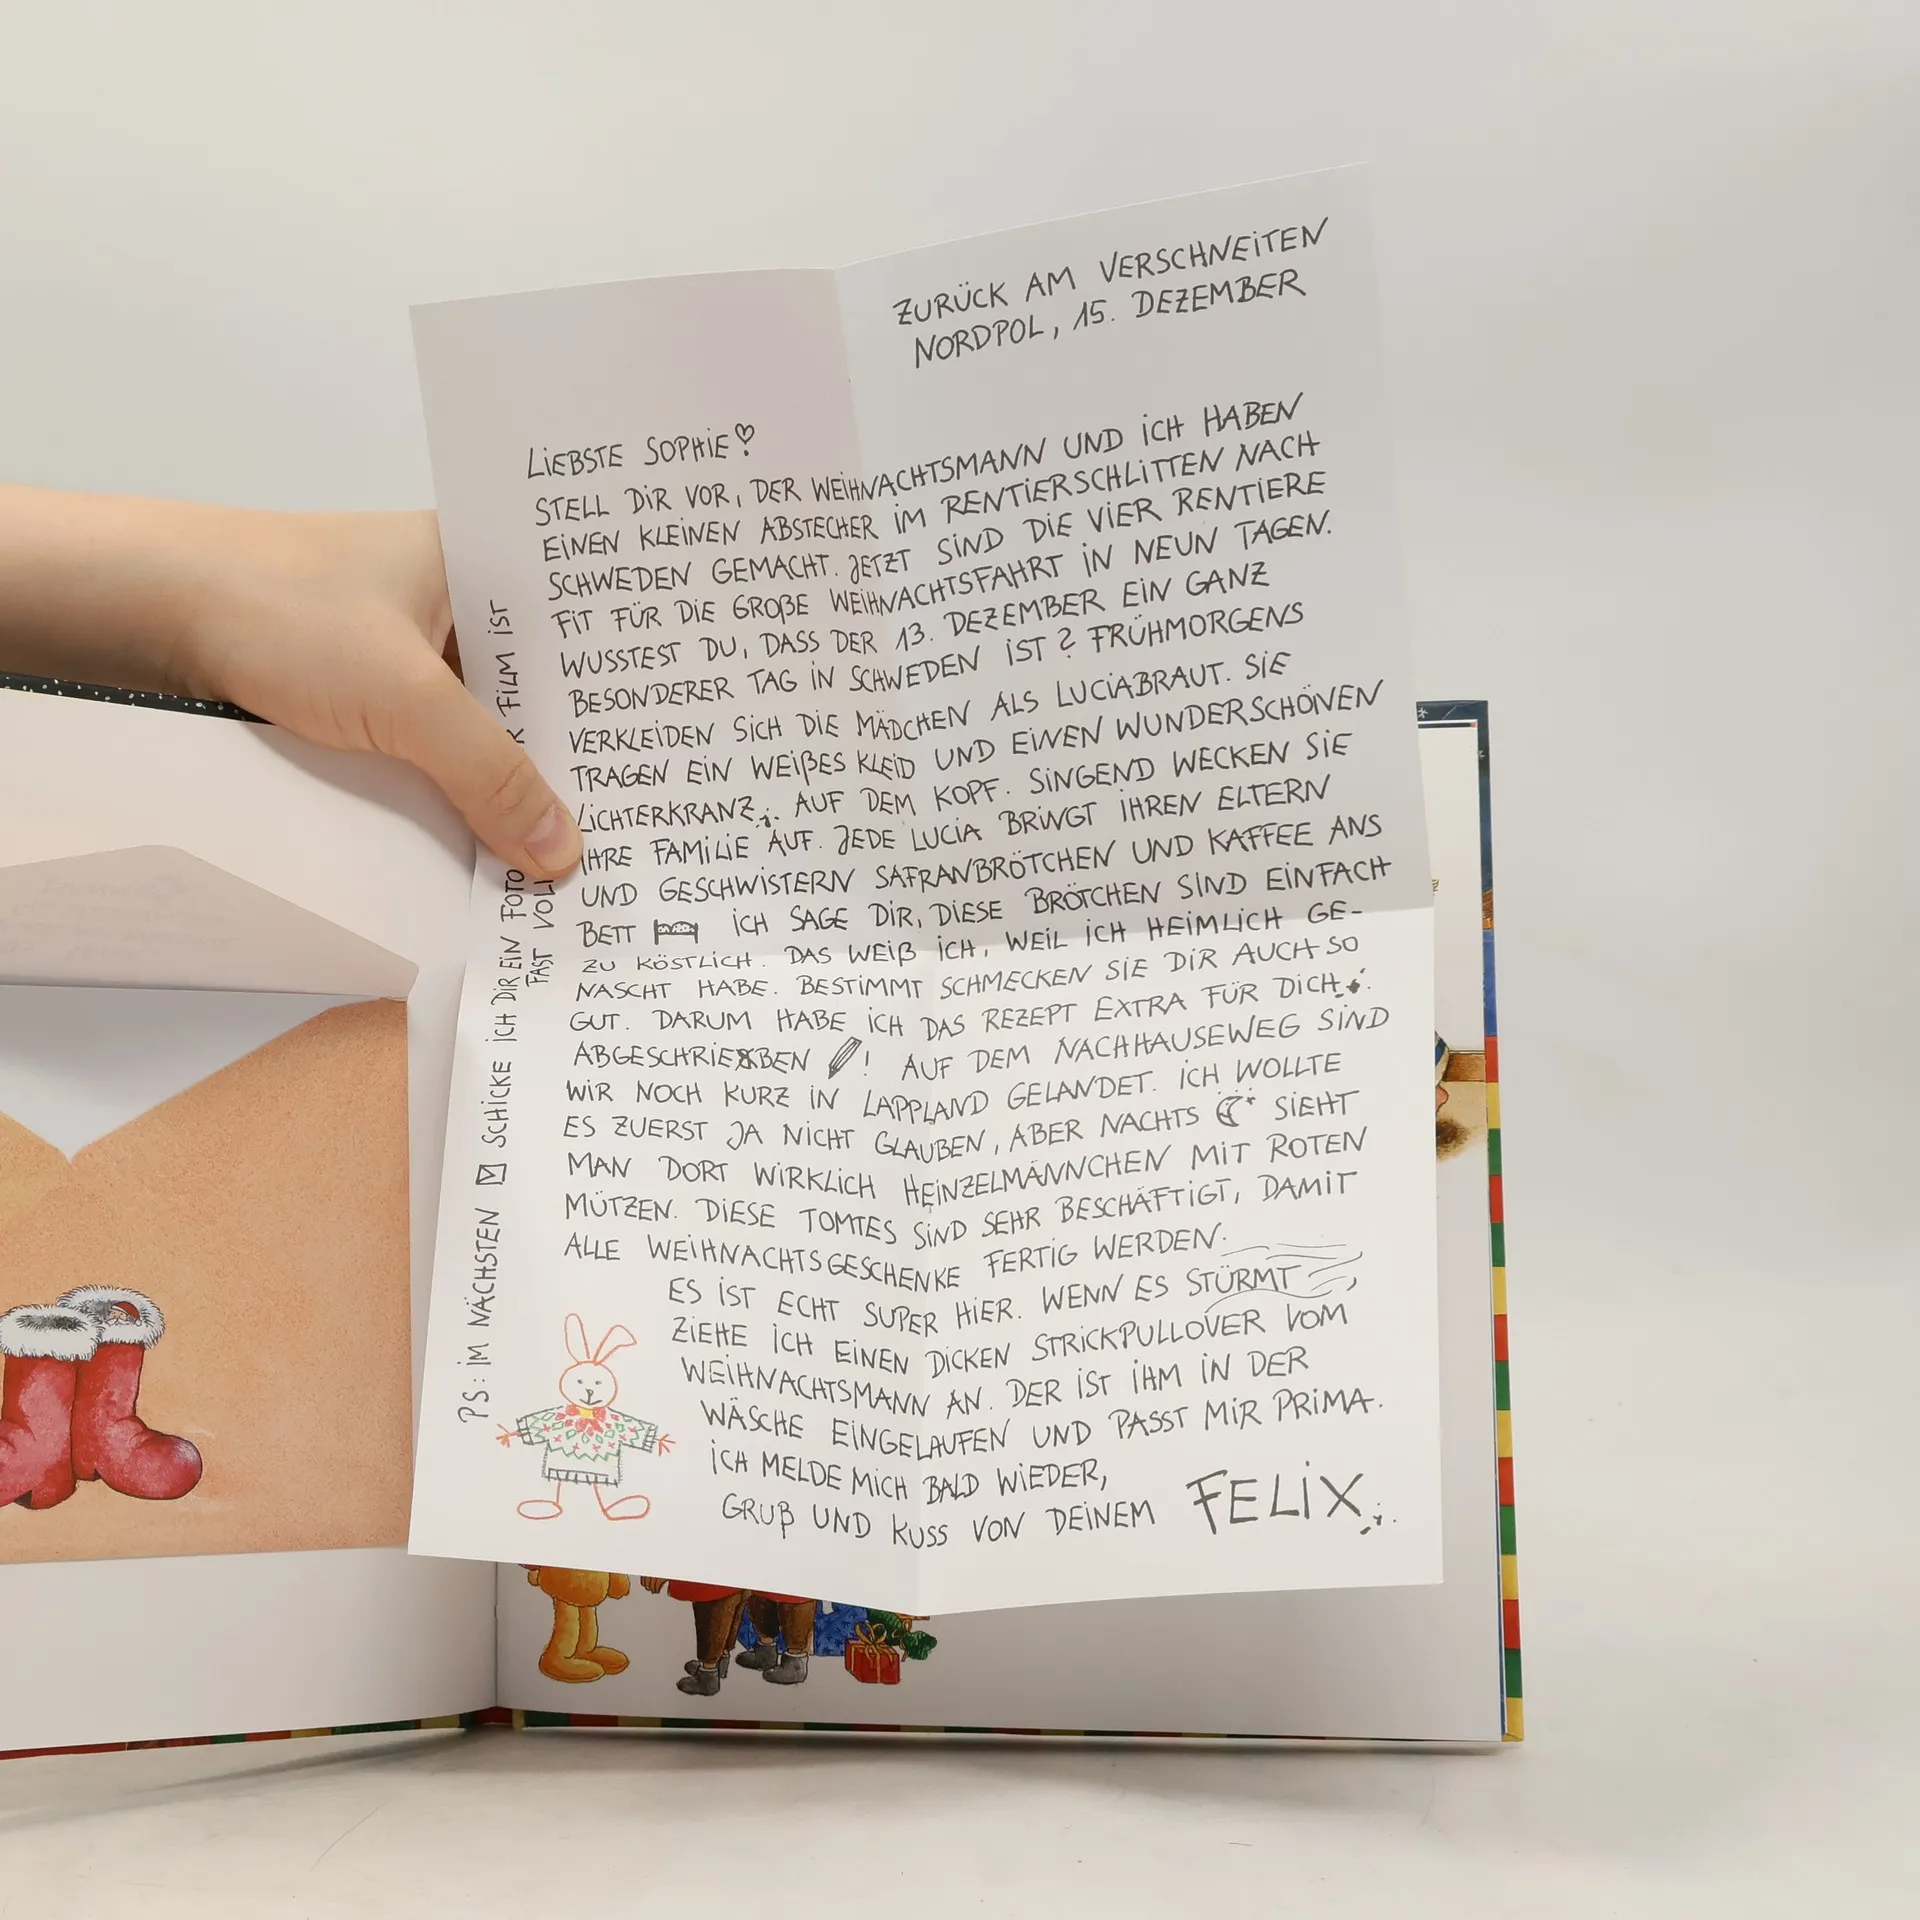 ZURÜCK AM VERSCHNEITEN
NORDPOL, 15. DEZEMBER
LIEBSTE SOPHIE!
STELL DIR VOR, DER WEIHNACHTSMANN UND ICH HABEN
EINEN KLEINEN ABSTECHER IM RENTIERSCHLITTEN NACH
SCHWEDEN GEMACHT. JETZT SIND DIE VIER RENTIERE
FIT FÜR DIE GROßE WEIHNACHTSFAHRT IN NEUN TAGEN.
WUSSTEST DU, DASS DER 13. DEZEMBER EIN GANZ
BESONDERER TAG IN SCHWEDEN IST? FRÜHMORGENS
VERKLEIDEN SICH DIE MÄDCHEN ALS LUCIABRAUT. SIE
TRAGEN EIN WEIßES KLEID UND EINEN WUNDERSCHÖNEN
LICHTERKRANZ AUF DEM KOPF. SINGEND WECKEN SIE
IHRE FAMILIE AUF. JEDE LUCIA BRINGT IHREN ELTERN
UND GESCHWISTERN SAFRANBRÖTCHEN UND KAFFEE ANS
BETT ICH SAGE DIR, DIESE BRÖTCHEN SIND EINFACH
ZU KÖSTLICH. DAS WEIß ICH, WEIL ICH HEIMLICH GE-
NASCHT HABE. BESTIMMT SCHMECKEN SIE DIR AUCH SO
GUT. DARUM HABE ICH DAS REZEPT EXTRA FÜR DICH
ABGESCHRIEBEN! AUF DEM NACHHAUSEWEG SIND
WIR NOCH KURZ IN LAPPLAND GELANDET. ICH WOLLTE
ES ZUERST JA NICHT GLAUBEN, ABER NACHTS SIEHT
MAN DORT WIRKLICH HEINZELMÄNNCHEN MIT ROTEN
MÜTZEN. DIESE TOMTES SIND SEHR BESCHÄFTIGT, DAMIT
ALLE WEIHNACHTSGESCHENKE FERTIG WERDEN.
ES IST ECHT SUPER HIER. WENN ES STÜRMT,
ZIEHE ICH EINEN DICKEN STRICKPULLOVER VOM
WEIHNACHTSMANN AN. DER IST IHM IN DER
WÄSCHE EINGELAUFEN UND PASST MIR PRIMA.
ICH MELDE MICH BALD WIEDER,
GRUß UND KUSS VON DEINEM FELIX
PS: IM NÄCHSTEN SCHICKE ICH DIR EIN FOTO FILM IST
FAST VOLL